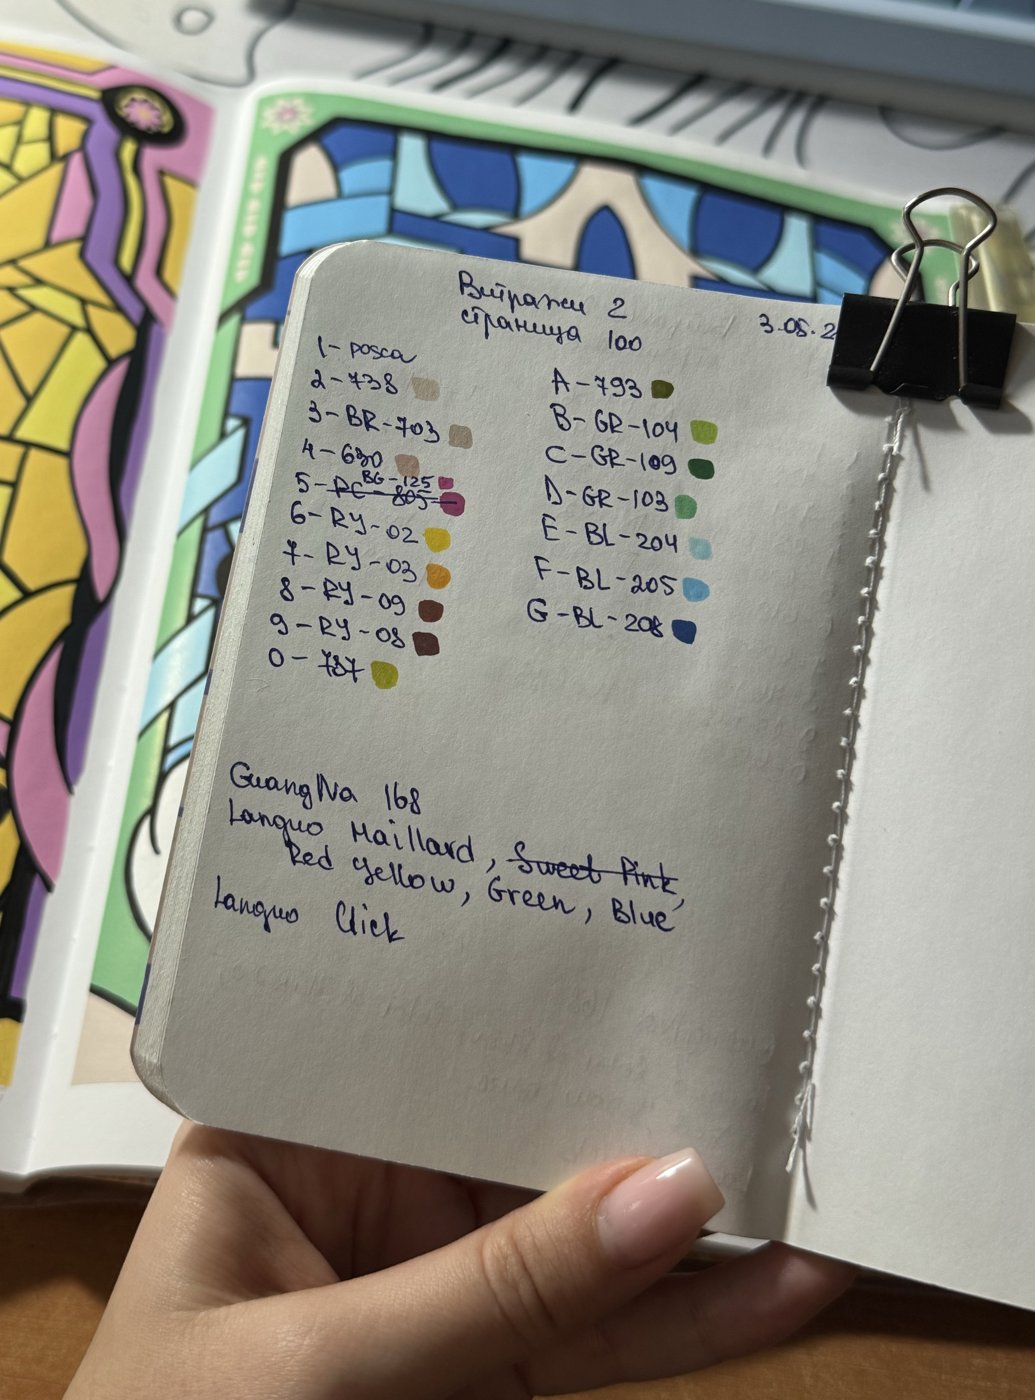 Витражи 2
страница 100
3.05.2
1- posca
2-738
3-BR-703
4-630
5-PC-805 BG-125
6-RY-02
7-RY-03
8-RY-09
9-RY-08
0-787
A-793
B-GR-104
C-GR-109
D-GR-103
E-BL-204
F-BL-205
G-BL-208
GuangNa 168
Languo Maillard, Sweet Pink,
Red Yellow, Green, Blue
Languo Click